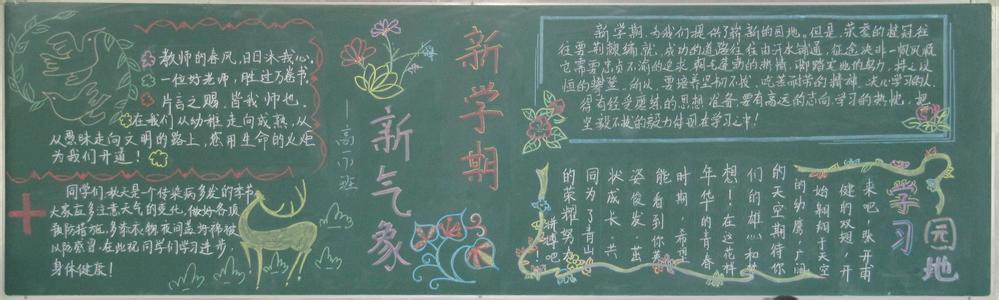 教师的春风，日日沐我心。
一位好老师，胜过万卷书。
片言之赐，皆我师也。
在我们从幼稚走向成熟，从
从愚昧走向文明的路上，您用生命的火炬
为我们开道！
同学们，秋天是个传染病多发的季节
大家应多注意天气的变化，做好各项
预防措施，多添衣物夜间盖好棉被
以防感冒，在此祝同学们学习进步，
身体健康！
新学期
新气象
新学期，为我们提供了崭新的园地。但是，荣誉的桂冠往
往要荆棘编就，成功的道路往往由汗水铺通，征途决非一帆风顺
它需要
恒的攀登。所以，要培养坚韧不拔、吃苦耐劳的精神。决心学习的人
得有经受磨练的思想准备，要有高远的志向，学习的热忱，把
坚毅不拔的毅力体现在学习之中！
学习
园地
来吧，张开雨
健的双翅，开
始翱翔于天空
的幼鹰，广阔
的天空期待你
们的雄心和梦
想！在这花样
年华的青春
时期，希望
能看到你英
姿俊发，茁
状成长，共
同为了青山
的荣耀努力
拼搏吧！